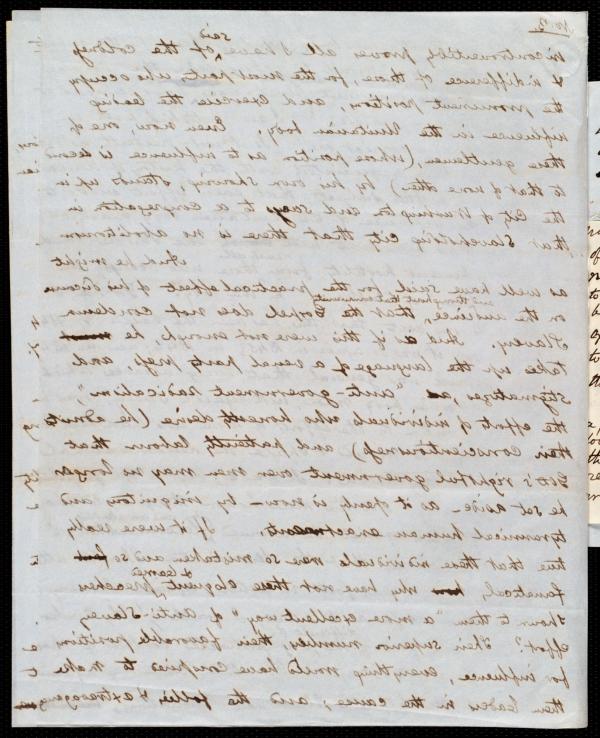 No 2
incontrovertibly prove all I have said of the coldness
& indifference of those, for the most part who occupy
the prominent position, and exercise the leading
influence in the Unitarian body. Even now, one of
these gentlemen (whose position as to influence is second
to that of none other) by his own showing, stands up in
the City of Washington and says to a congregation in
that Slaveholding city that there is no abolitionism
which he might
as well have said for the practical effect of his discourse
on the audience, and throughout that community that the Gospel does not condemn
Slavery. And as if this were not enough, he must
take up the language of a venal party press, and
stigmatizes, as "anti-government radicalism",
the effort of individuals who honestly desire (he admits
their conscientiousness) and patiently labor that
God's rightful government over men may no longer
be set aside – as it openly is now – by iniquitous and
tyrannical human enactments. If it were really
true that these individuals were so mistaken and so
fanatical, why have not these eloquent & learned preachers
shown to them "a more excellent way" of Anti-Slavery
effort? Their superior number, their favorable position
for influence, everything would have conspired to make
them leaders in the cause; and the follies & extravagances